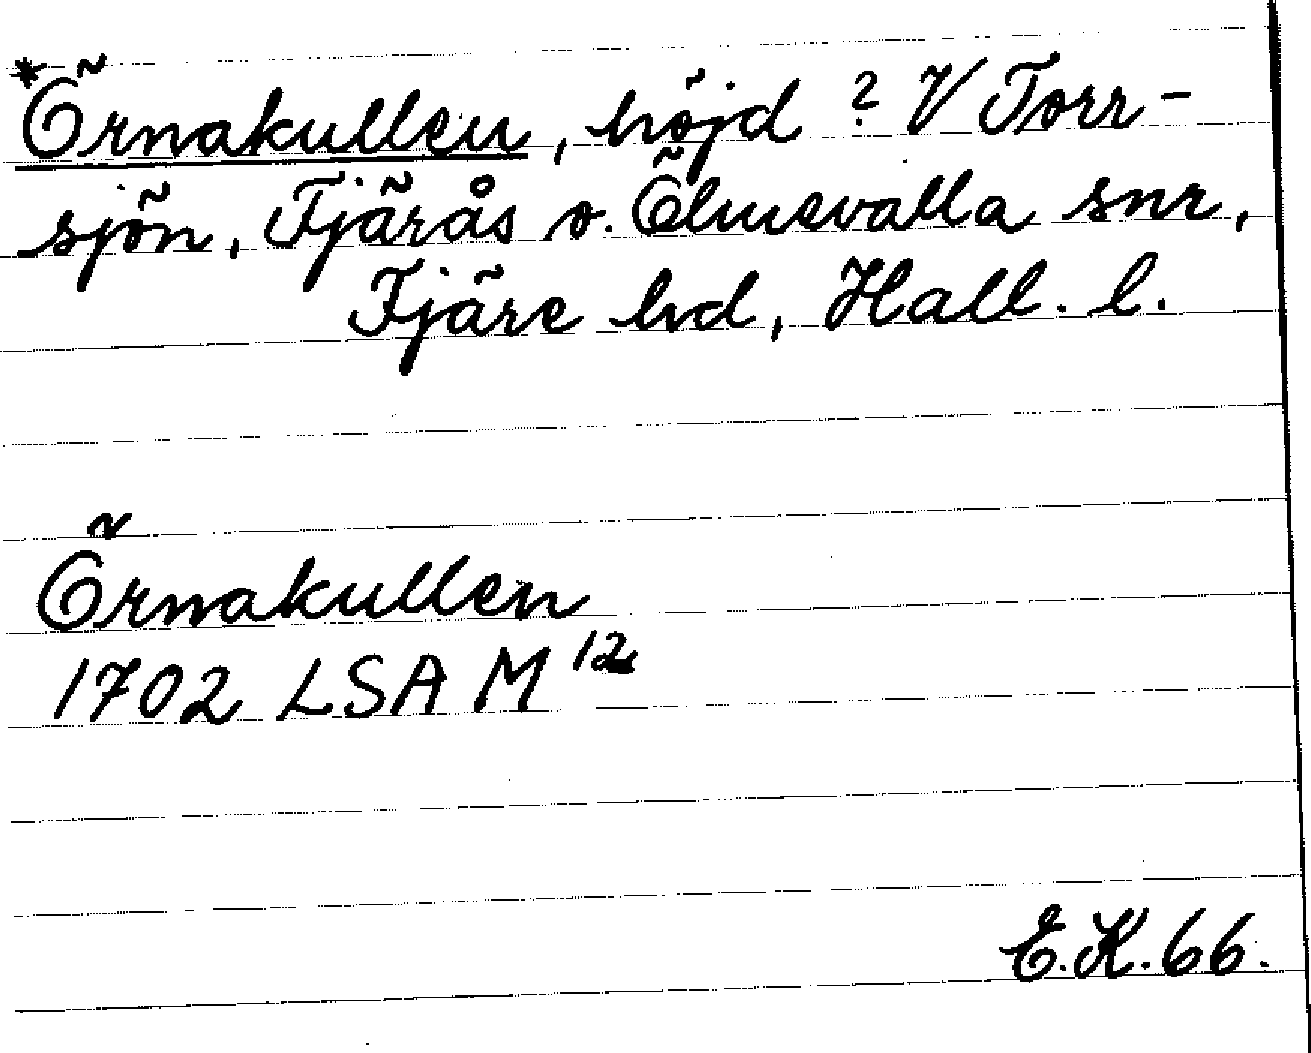 *Örnakullen, höjd ? V Torr-
sjön, Fjärås o. Ölmevalla snr,
Fjäre hd, Hall. l.
Örnakullen
1702 LSA M 12
E.K.66.